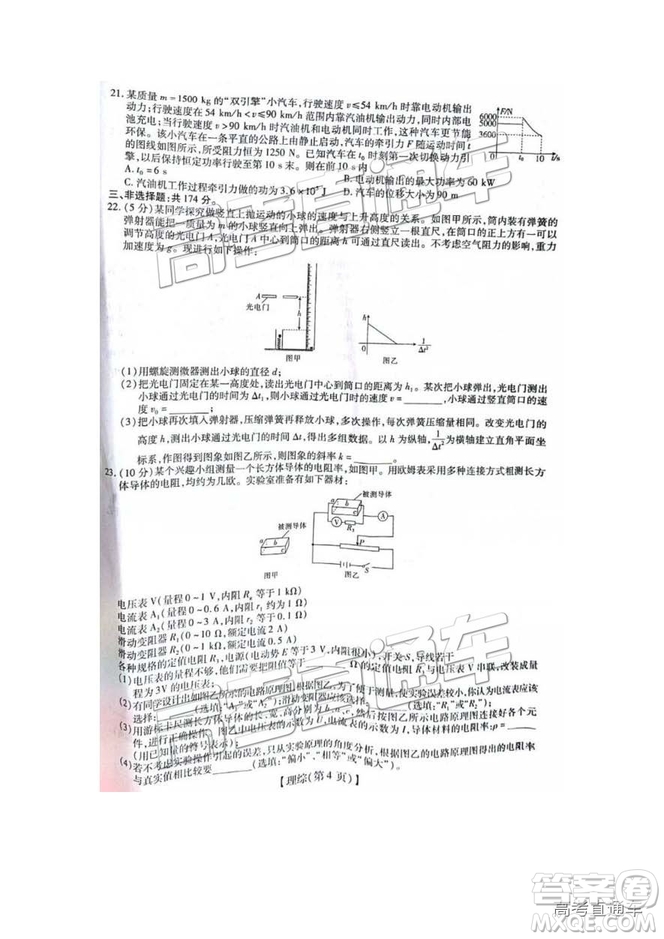 21. 某质量 m=1500 kg 的“双引擎”小汽车,行驶速度 v≤54 km/h 时靠电动机输出
动力;行驶速度在 54 km/h<v≤90 km/h 范围内靠汽油机输出动力,同时内部电
池充电;当行驶速度 v>90 km/h 时汽油机和电动机同时工作,这种汽车更节能
环保。该小汽车在一条平直的公路上由静止启动,汽车的牵引力 F 随运动时间 t
的图线如图所示,所受阻力恒为 1250 N。已知汽车在 t₀ 时刻第一次切换动力引
擎,以后保持恒定功率行驶至第 10 s 末。则在前 10 s 内
F/N
6000
5000
3600
0 t₀ 10 t/s
A. t₀=6 s
B. 电动机输出的最大功率为 60 kW
C. 汽油机工作过程牵引力做的功为 3.6×10⁵ J
D. 汽车的位移大小为 90 m
三、非选择题:共 174 分。
22. (5 分)某同学探究做竖直上抛运动的小球的速度与上升高度的关系。如图甲所示,筒内装有弹簧的
弹射器能把一质量为 m 的小球竖直向上弹射。弹射器旁边固定一根直尺,在筒口的正上方有一可以
调节高度的光电门 A,光电门 A 距离筒口的距离 h 可通过直尺读出。不考虑空气阻力的影响,重力
加速度为 g。现进行如下操作:
A
光电门
h
图甲
h
0
1/Δt²
图乙
(1)用螺旋测微器测出小球的直径 d;
(2)把光电门固定在某一高度处,读出光电门中心到筒口的距离为 h₁。接通电源,光电门测出
小球通过光电门的时间为 t₁,则小球通过光电门时的速度大小 v=______,小球通过竖直筒口的速
度 v₀=______;
(3)把小球再次填入弹射器,压缩弹簧再释放小球,多次操作,每次弹簧压缩量相同。改变光电门的
高度 h,测出小球通过光电门的时间 Δt,得出多组数据。以 h 为纵轴,1/Δt² 为横轴建立直角平面坐
标系,作出图象如图乙所示,则图象的斜率 k=______。
23. (10 分)某个兴趣小组测量一个长方体导体的电阻率,如图甲。用欧姆表采用多种连接方式粗测长方
体导体的电阻,均约为几欧。实验室准备有如下器材:
a b c
被测导体
图甲
a b c
被测导体
V R₃
A
P
S
图乙
电压表 V(量程 0~1 V,内阻 Rᵥ 等于 1 kΩ)
电流表 A₁(量程 0~0.6 A,内阻 r₁ 等于 1 Ω)
电流表 A₂(量程 0~3 A,内阻 r₂ 约为 0.1 Ω)
滑动变阻器 R₁(0~10 Ω,额定电流 2 A)
滑动变阻器 R₂(0~1 kΩ,额定电流 0.5 A)
各种规格的定值电阻 R₃,电源(电动势 E 等于 3 V,内阻不计),开关 S,导线若干
(1)电压表的量程不够,他们需要将一个______Ω 的定值电阻与电压表 V 串联,改装成量
程为 3V 的电压表;
(2)有同学设计出如图乙所示的电路原理图用于测量,使实验误差较小,你认为电流表应该
选择:______(选填“A₁”或“A₂”);滑动变阻器应该选择:______(选填“R₁”或“R₂”);
(4)若不考虑操作引起的误差,只从实验原理的角度分析,用图乙的电路原理图得出的电阻率
与真实值相比较会______(选填:“偏小”、“相等”或“偏大”)。
【理综(第 4 页)】
高考直通车
答案圈
MXQE.COM
高考直通车